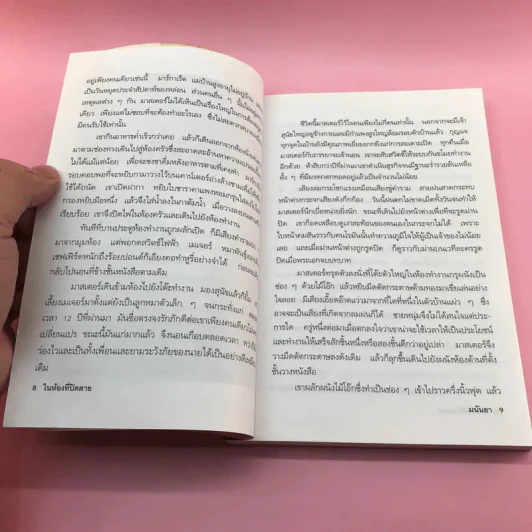 อยู่เพียงคนเดียวเช่นนี้ มาร์กาเร็ต แม่บ้านสูงอายุไม่อยู่บ้าน
เป็นวันหยุดประจำสัปดาห์ของหล่อน ส่วนคนอื่น ๆ นั้น
เหตุผลต่าง ๆ กัน มาสเตอร์ไม่ได้เห็นเป็นเรื่องใหญ่ในการ
เดียว เพียงแต่ไม่ชอบที่จะต้องทำอะไรเอง ซึ่งไม่สะดวก
มีคนรับใช้เท่านั้น
เขากินอาหารค่ำเร็วกว่าเคย แล้วก็เดินออกจากห้อง
มาตามช่องทางเดินไปสู่ห้องครัวซึ่งสะอาดสะอ้าน
ไม่ได้แม้แต่น้อย เพื่อจะชงชาดื่มหลังอาหารตามที่เคย
รอบคอบพอที่จะหยิบกามาวางไว้บนเคาน์เตอร์อ่างล้างชาม
ใช้ได้ถนัด เขาเปิดฝากา หยิบใบชาราคาแพงหอมกรุ่น
กรองหยิบมือหนึ่ง แล้วจึงใส่น้ำลงในกาต้มน้ำ เมื่อวางลงบน
เรียบร้อย เขาจึงปิดไฟในห้องครัวและเดินไปยังห้องทำงาน
ทันทีที่บานประตูห้องทำงานถูกผลักเปิด ก็มีเสียง
มาจากมุมห้อง แต่พอกดสวิตช์ไฟฟ้า เมเจอร์
เชฟเฟิร์ดหนักถึงร้อยปอนด์ก็เงียบลง
กลับไปนอนที่ข้างชั้นหนังสือตามเดิม
มาสเตอร์เดินข้ามห้องไปยังโต๊ะทำงาน มองสุนัขแล้วก็
เลี้ยงเมเจอร์มาตั้งแต่ยังเป็นลูกหมาตัวเล็ก ๆ จนกระทั่ง
เวลา 12 ปีที่ผ่านมา มันซื่อตรงจงรักภักดีต่อเขาเพียงคนเดียว
เปลี่ยนแปร ขณะนี้มันแก่มากแล้ว จึงนอนเกือบตลอดเวลา
ว่องไวและเป็นทั้งเพื่อนและยามระวังภัยของนายได้เป็นอย่างดี
เดิม
8 ในห้องที่ปิดตาย
ชีวิตนี้มาสเตอร์ไว้ใจคนเพียงไม่กี่คนเท่านั้น นอกจากจะมีเจ้า
สุนัขใหญ่อยู่ข้างกายและมีกำแพงสูงใหญ่ล้อมรอบตัวบ้านแล้ว กุญแจ
ทุกจุดในบ้านยังมีคุณภาพเยี่ยมยอกยิ่งแก่การลอบเปิด ทุกคืนเมื่อ
มาสเตอร์กับภรรยาจะเข้านอน เขาจะสับสวิตช์ให้ระบบกันขโมยทำงาน
อีกด้วย ห้าสิบกว่าปีที่ผ่านมาเขาดำเนินธุรกิจจนมีฐานะร่ำรวยล้นเหลือ
ทั้ง ๆ ที่มีมรดกตกทอดอยู่แล้วเป็นจำนวนไม่น้อย
เสียงลมกระโชกแรงเหมือนเสียงขู่คำราม สายฝนสาดกระทบ
หน้าต่างกระจกเสียงดังกึกก้อง วันนี้ฝนตกไม่ขาดเม็ดทั้งวันจนทำให้
มาสเตอร์นึกเบื่อหน่ายยิ่งนัก ขณะที่เดินไปยังหน้าต่างเพื่อที่จะรูดม่าน
ปิด เขาก็อดเหลือบดูเงาสะท้อนของตนเองในกระจกไม่ได้ เพราะ
ใบหน้าคมสันราวกับคนโรมันนั้นทำความภูมิใจให้ผู้เป็นเจ้าของไม่น้อย
เลย และเมื่อม่านหน้าต่างถูกรูดปิด ก็ดูราวกับม่านบนเวทีละครรูด
ปิดเมื่อพระเอกจบบทบาท
มาสเตอร์ทรุดตัวลงนั่งที่โต๊ะตัวใหญ่ในห้องทำงานกรุผนังเป็น
ช่อง ๆ ด้วยไม้โอ๊ก แล้วหยิบมีดตัดกระดาษด้ามทองมาเขี่ยเล่นอย่าง
ใจลอย มีเสียงเอี๊ยดอ๊าดแว่วมาจากที่ใดที่หนึ่งในตัวบ้านแผ่ว ๆ ซึ่ง
อาจจะเป็นเสียงที่เกิดจากลมฝนก็ได้ ชายหนุ่มจึงไม่ได้สนใจแต่ประ
การใด ครู่หนึ่งต่อมาเมื่อตกลงใจว่าเขาน่าจะใช้เวลาให้เป็นประโยชน์
และทำงานให้เสร็จสักชิ้นหนึ่งหรือสองชิ้นดีกว่าอยู่เปล่า มาสเตอร์จึง
วางมีดตัดกระดาษลงดังเดิม แล้วก็ลุกขึ้นเดินไปยังผนังห้องด้านที่ตั้ง
ชั้นวางหนังสือ
เขาผลักผนังไม้โอ๊กซึ่งทำเป็นช่อง ๆ เข้าไปราวครึ่งนิ้วฟุต แล้ว
มนันยา 9